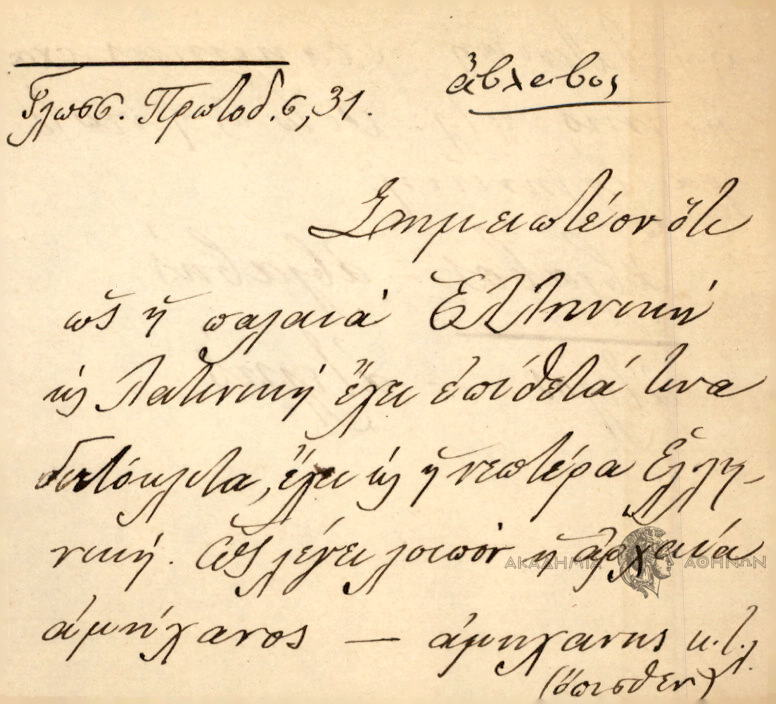 Γλωσσ. Πρωτοδ. σ, 31.
ἄβλαβος
Σημειωτέον ὅτι
ὡς ἡ παλαιὰ Ἑλληνική
κ Λατινική ἔχει ἐπίθετά τινα
διπλόκλιτα, ἔχει κ ἡ νεωτέρα Ἑλλη-
νική. Ὡς λέγει λοιπὸν ἡ ἀρχαία
ἀμήχανος — ἀμηχανης κ.τ.λ.
(ὄπισθεν)
ΑΚΑΔΗΜΙΑ ΑΘΗΝΩΝ